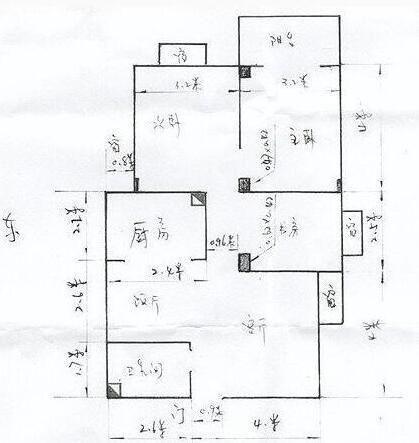 阳台
窗
3.2米
3.2米
次卧
主卧
4米
窗
0.8米
0.42×0.42
2.2米
厨房
0.96米
书房
窗
2.5米
2.4米
东
2.6米
饭厅
客厅
窗
4米
1.7米
卫生间
门
0.9米
2.6米
4.米